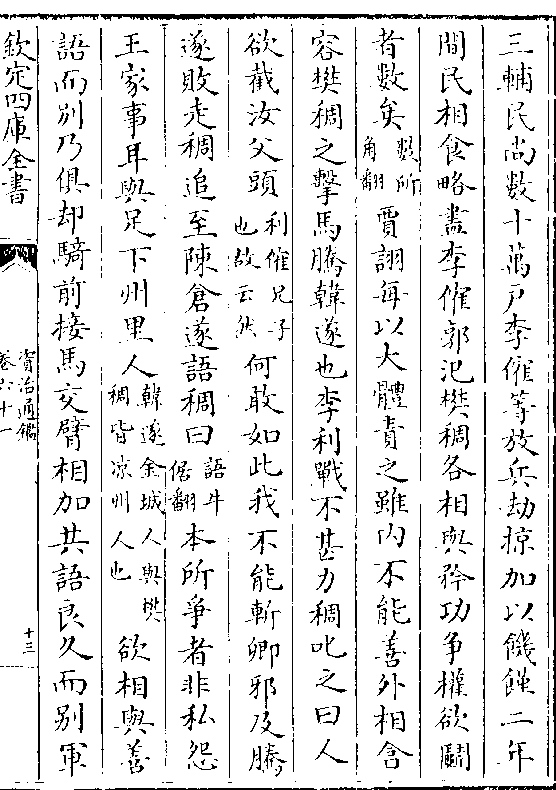 三輔民尚數十萬戶李傕等放兵劫掠加以饑饉二年
間民相食略盡李傕郭汜樊稠各相與矜功爭權欲鬬
者數矣數所角翻賈詡每以大體責之雖内不能善外相含
容樊稠之擊馬騰韓遂也李利戰不甚力稠叱之曰人
欲截汝父頭利傕兄子也故云然何敢如此我不能斬卿邪及騰
遂敗走稠追至陳倉遂語稠曰語牛倨翻本所爭者非私怨
王家事耳與足下州里人韓遂金城人與樊稠皆凉州人也欲相與善
語而别乃俱却騎前接馬交臂相加共語良久而别軍
欽定四庫全書
資治通鑑
卷六十一
十三